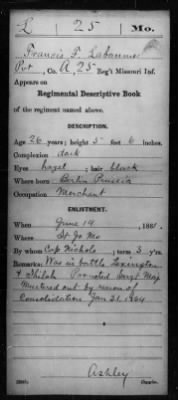 L | 25 | Mo.
Francis F. Labaume
Pvt, Co. A, 25 Reg't Missouri Inf.
Appears on
Regimental Descriptive Book
of the regiment named above.
DESCRIPTION.
Age 26 years; height 5 feet 6 inches.
Complexion dark
Eyes hazel ; hair black
Where born Berlin Prussia
Occupation Merchant
ENLISTMENT.
When June 19, 1861.
Where St Jo Mo
By whom Cap Nichols ; term 3 y'rs.
Remarks: Was in battle Lexington
& Shiloh Promoted Sergt Maj
Mustered out by reason of
Consolidation Jan 31 1864
Ashley
Copyist.